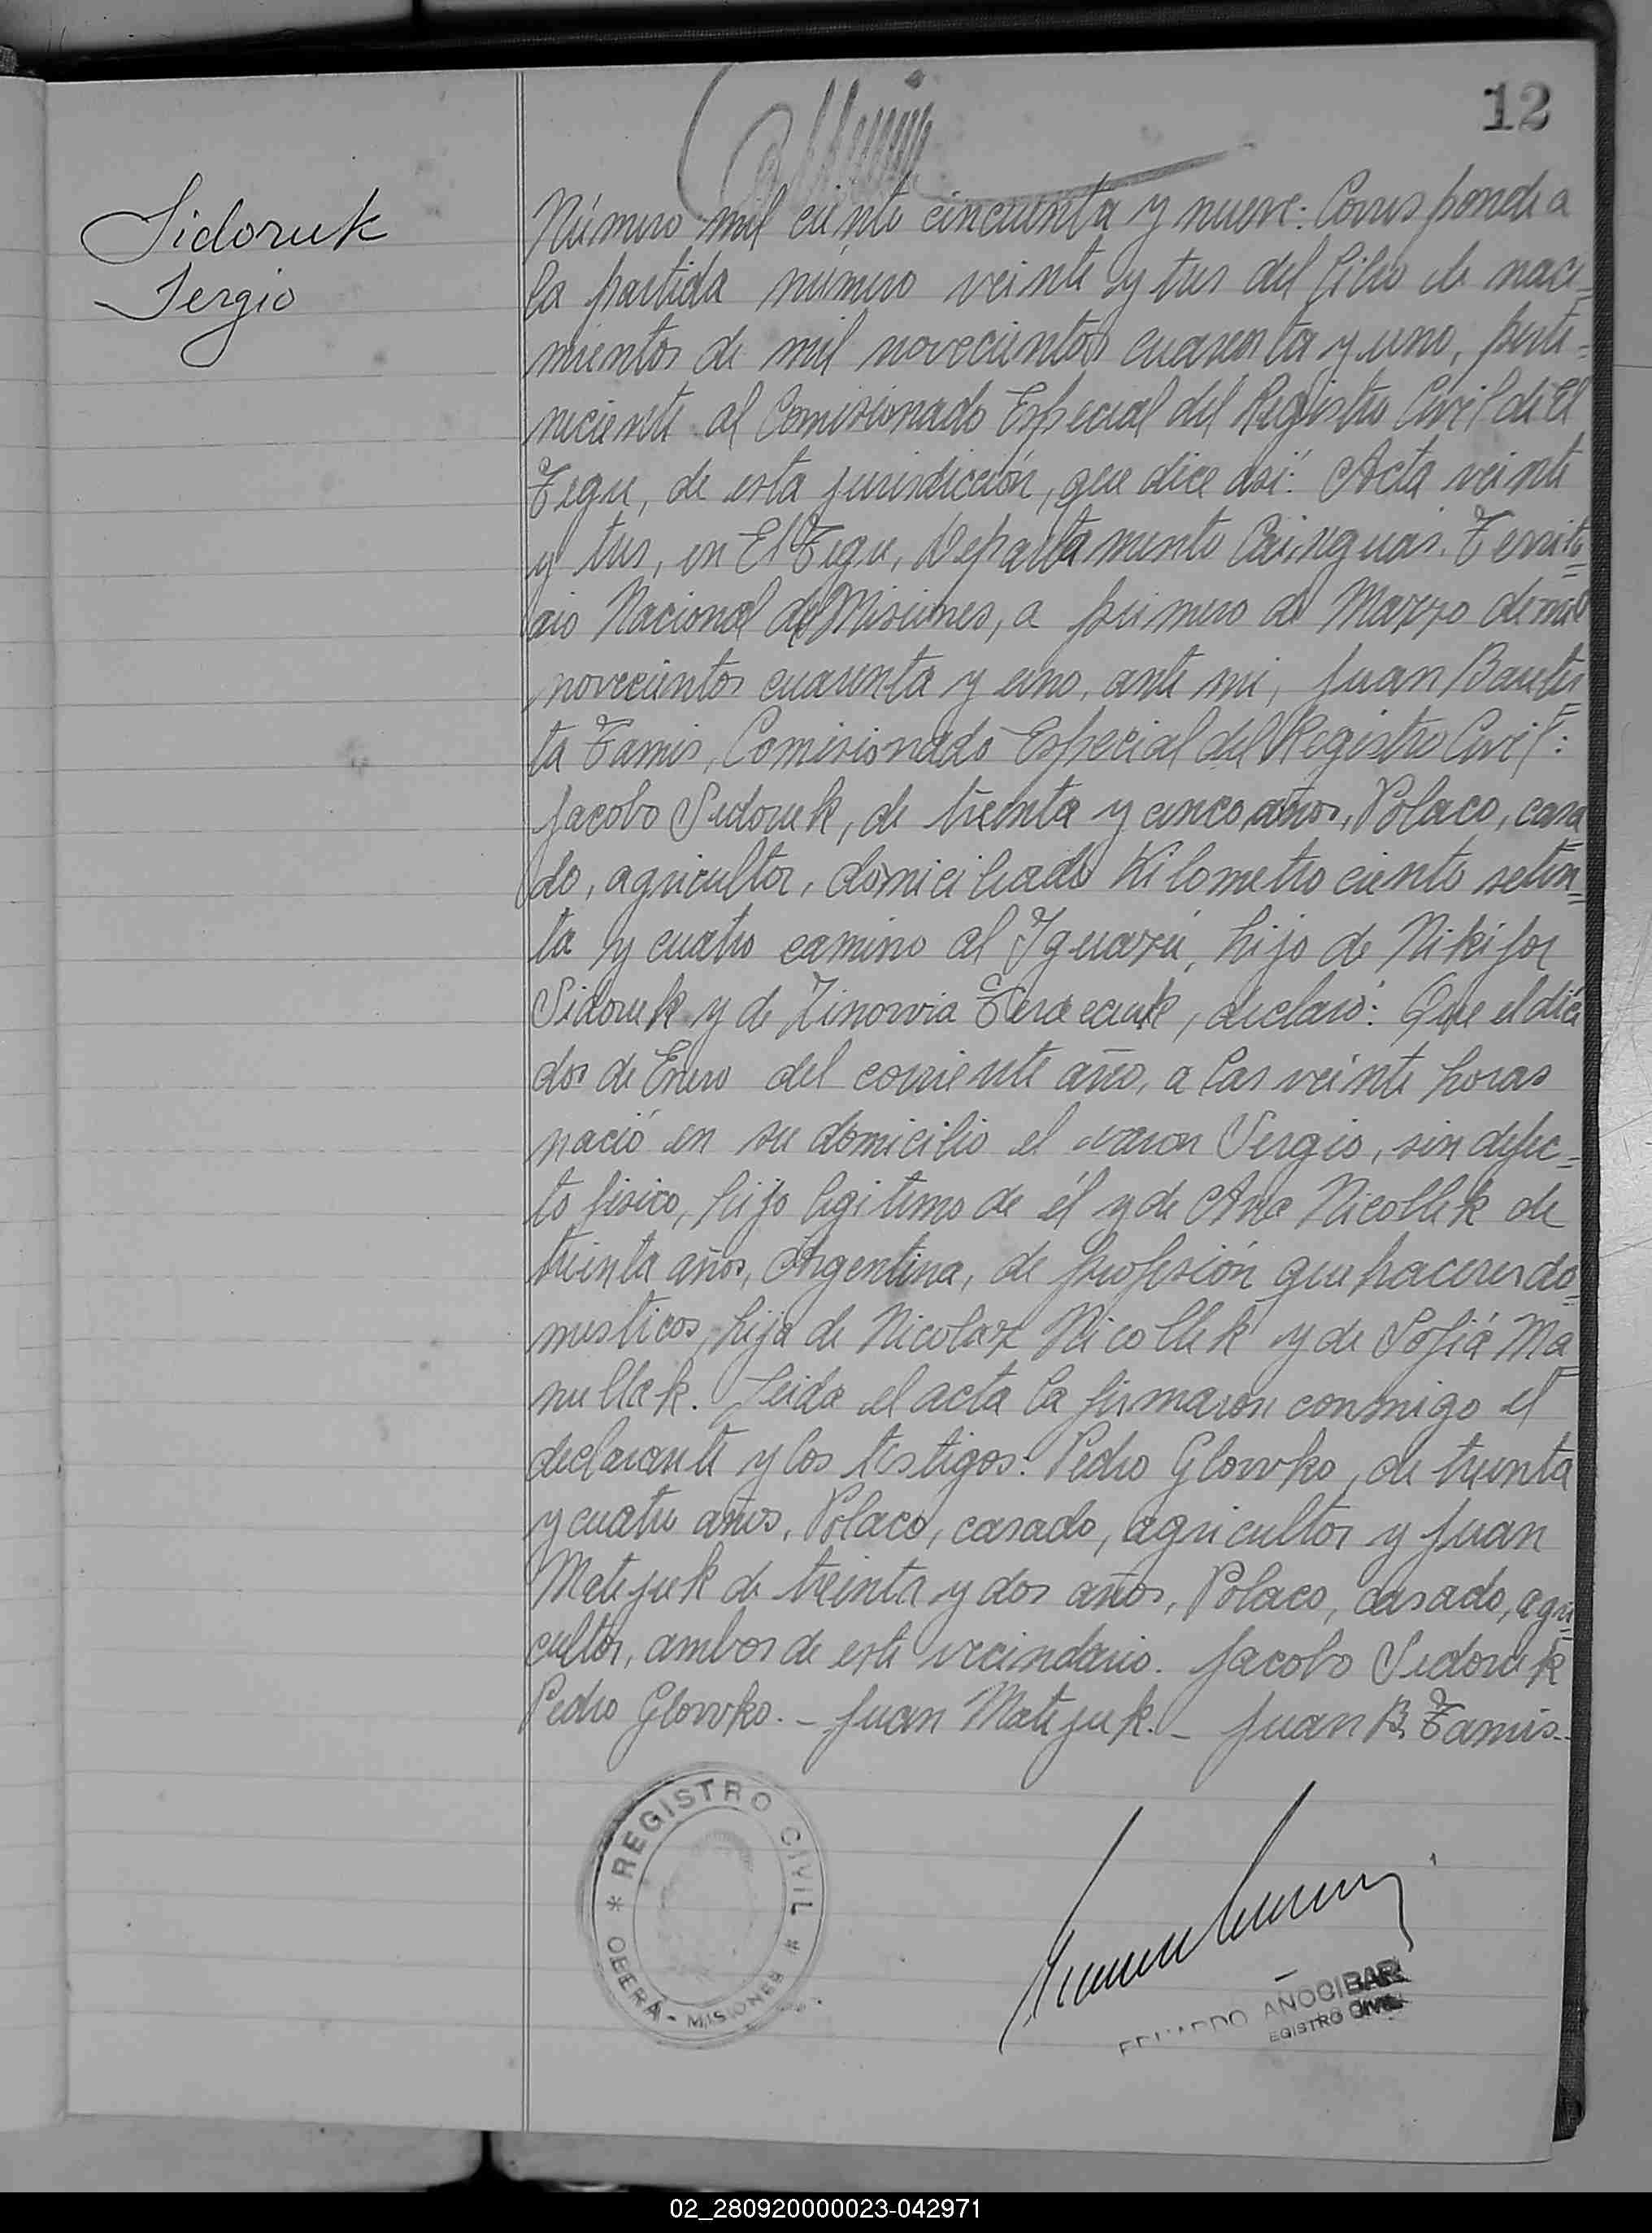 12
Sidoruk
Sergio
Número mil ciento cincuenta y nueve: Corresponde a
la partida número veinte y tres del libro de naci=
mientos de mil novecientos cuarenta y uno, perte=
neciente al Comisionado Especial del Registro Civil de El
Tegu, de esta jurisdicción, que dice así: Acta veinte
y tres, en El Tegu, Departamento Cainguás. Territo=
rio Nacional de Misiones, a primero de Marzo de mil
novecientos cuarenta y uno, ante mi, Juan Bautis=
ta Tamis, Comisionado Especial del Registro Civil:
Jacobo Sidoruk, de treinta y cinco años, Polaco, casa
do, agricultor, domiciliado Kilometro ciento seten=
ta y cuatro camino al Iguazú, hijo de Nikifor
Sidoruk y de Zinowia, declaró: Que el día
dos de Enero del corriente año, a las veinte horas
nació en su domicilio el varon Sergio, sin defec=
to fisico, hijo legitimo de él y de Ana Nicollek de
treinta años, Argentina, de profesión quehaceres do=
mesticos, hija de Nicolaz Nicollek y de Sofiá Ma
nullak. Leida el acta la firmaron conmigo el
declarante y los testigos: Pedro Glowko, de treinta
y cuatro años, Polaco, casado, agricultor y Juan
Matejuk de treinta y dos años, Polaco, casado, agri=
cultor, ambos de este vecindario. Jacobo Sidoruk
Pedro Glowko. - Juan Matejuk. - Juan B. Tamis. -
* REGISTRO CIVIL *
OBERÁ - MISIONES
EDUARDO AÑOCIBAR
EGISTRO CIVIL
02_280920000023-042971